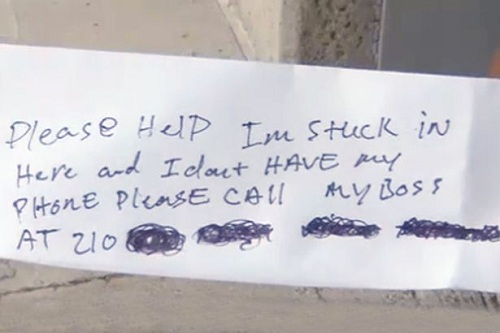 Please HelP Im stuck in
Here and I dont HAVE my
PHONE PleASE CAll MY BOSS
AT 210